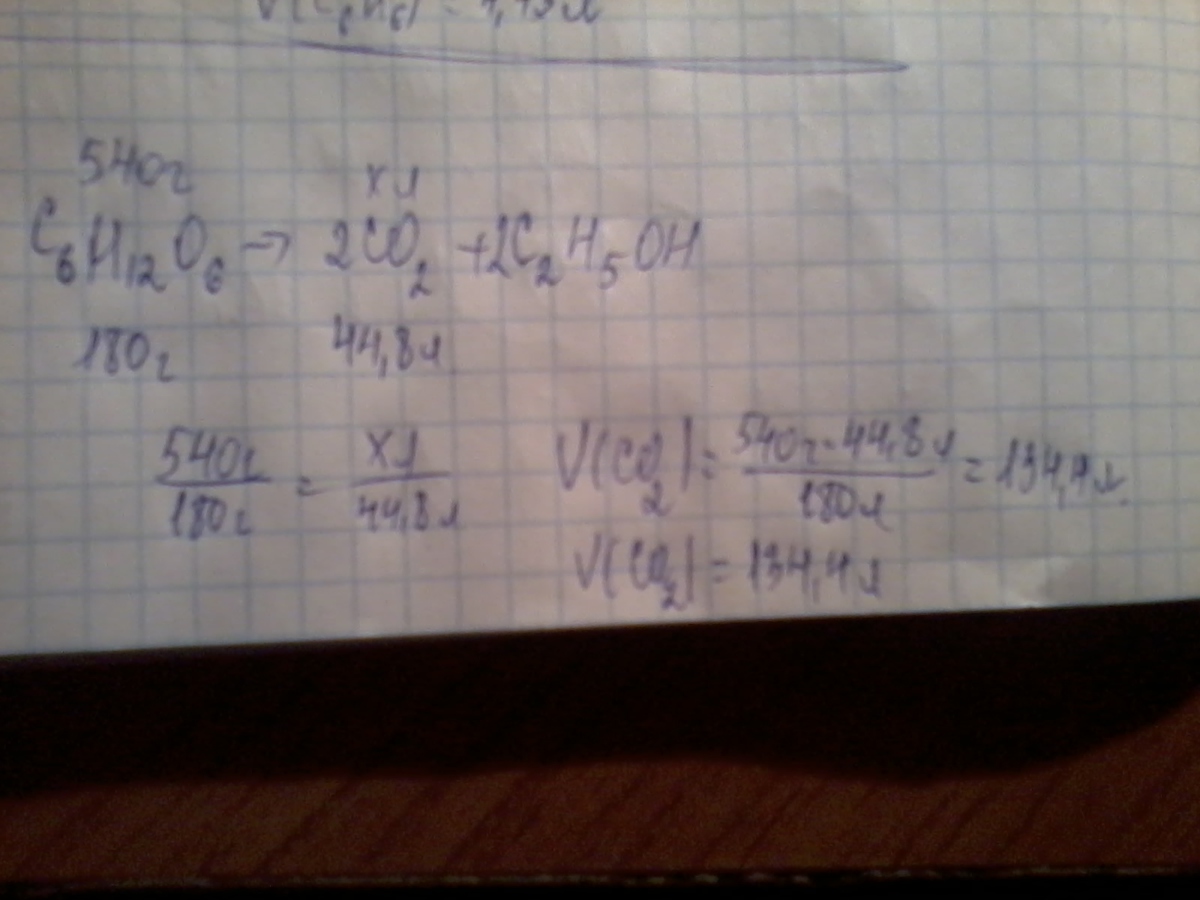 540г хл
C₆H₁₂O₆ → 2CO₂ + 2C₂H₅OH
180г 44,8л
540г/180г = хл/44,8л V(CO₂) = 540г·44,8л/180л = 134,4л.
V(CO₂) = 134,4л